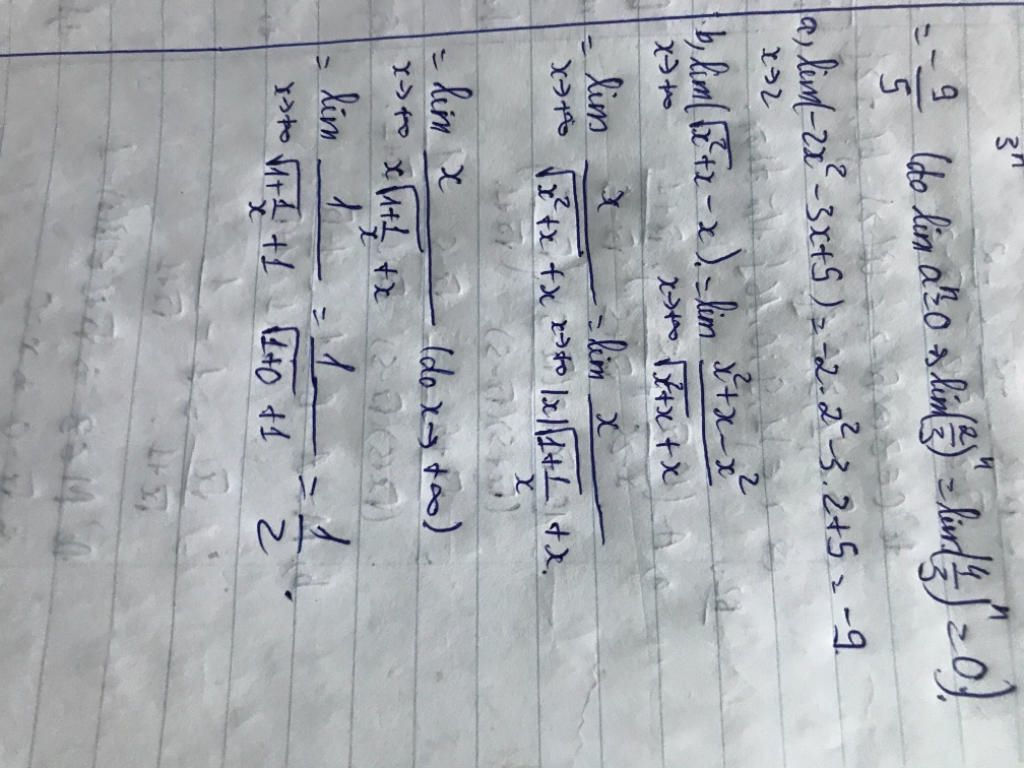 3ⁿ
= -9/5 (do lim aⁿ = 0 → lim(2/3)ⁿ = lim(4/3)ⁿ = 0).
a, lim(-2x² - 3x + 5) = -2.2² - 3.2 + 5 = -9.
x→2
b, lim(√(x²+x) - x) = lim (x² + x - x²)/(√(x²+x) + x)
x→+∞ x→+∞
= lim x/(√(x²+x) + x) = lim x/(|x|√(1+1/x) + x).
x→+∞ x→+∞
= lim x/(x√(1+1/x) + x) (do x→+∞)
x→+∞
= lim 1/(√(1+1/x) + 1) = 1/(√(1+0) + 1) = 1/2.
x→+∞